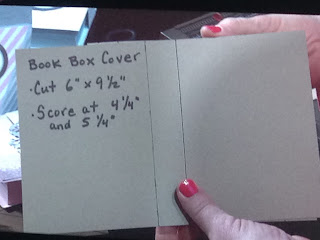 Book Box Cover
· Cut 6" x 9 1/2"
· Score at 4 1/4"
and 5 1/4"